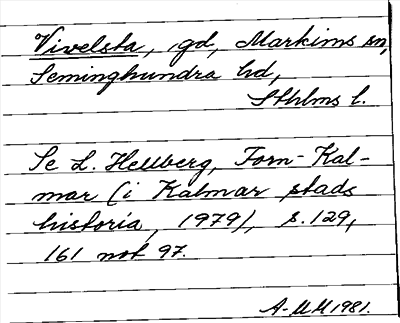 Vivelsta, gd, Markims sn,
Seminghundra hd,
Sthlms l.
Se L. Hellberg, Forn-Kal-
mar (i Kalmar stads
historia, 1979), s. 129,
161 not 97.
A-MM 1981.